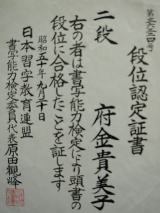 段位認定証書
二段 府金貴美子
右の者は書写能力検定により頭書の
段位に合格したことを証します
昭和五十年九月二十日
日本習字教育連盟
書写能力検定委員代表原田観峰